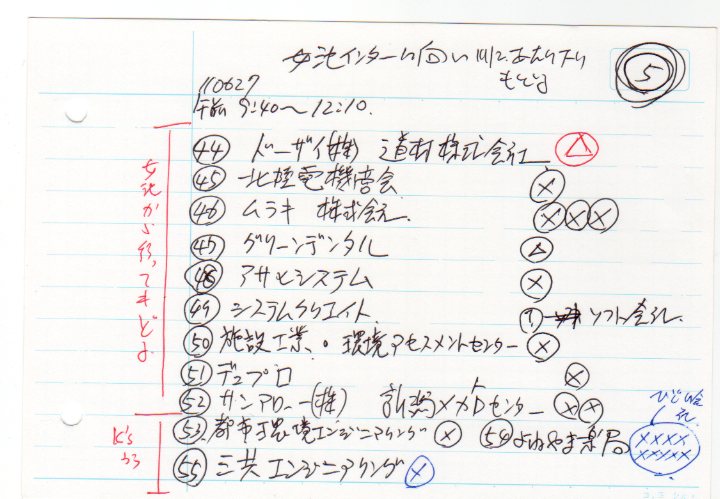 女池インターに向い川にあたり
もどる
5
110627
午前 9:40〜12:10.
44 ドーザイ(株) 道材株式会社 △
45 北極電機商会 ×
46 ムラキ 株式会社. ×××
47 グリーンデンタル △
48 アサヒシステム ×
49 システムクリエイト. ソフト会社.
50 施設工業.・環境アセスメントセンター ×
51 デュプロ ×
52 サンアロー(株) メガドセンター ××
53. 都市環境エンジニアリング × 54 よねやま薬局
55 三共エンジニアリング ×
女池から
もどる
K's
から
ひどい会社
××××
×××××